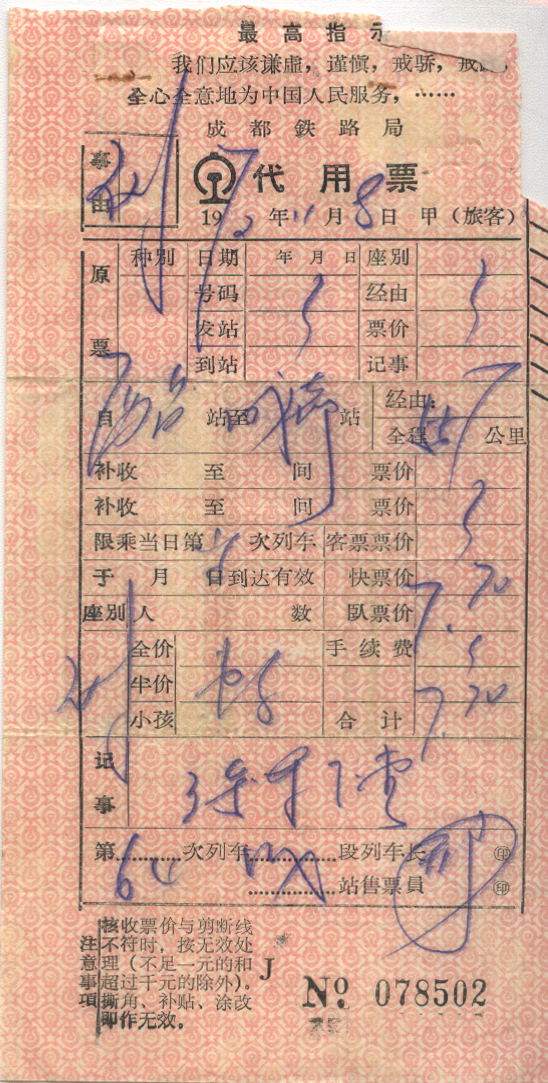 最高指示
我们应该谦虚，谨慎，戒骄，戒
全心全意地为中国人民服务，……
成都鉄路局
事由
代用票
1972年11月8日 甲（旅客）
原票
种别 日期 年月日 座别
号码 经由
发站 票价
到站 记事
自 站至 成都 站 经由：
全程 公里
补收 至 间 票价
补收 至 间 票价
限乘当日第 次列车 客票票价
于 月 日到达有效 快票价 7.70
座别 人数 臥票价
全价 手续费
半价
小孩 合计 7.70
记事
第64次列车 成 段列车长 印
站售票員 印
注意事項
核收票价与剪断线
不符时，按无效处
理（不足一元的和
超过千元的除外）。
撕角、补贴、涂改
即作无效。
J
№ 078502